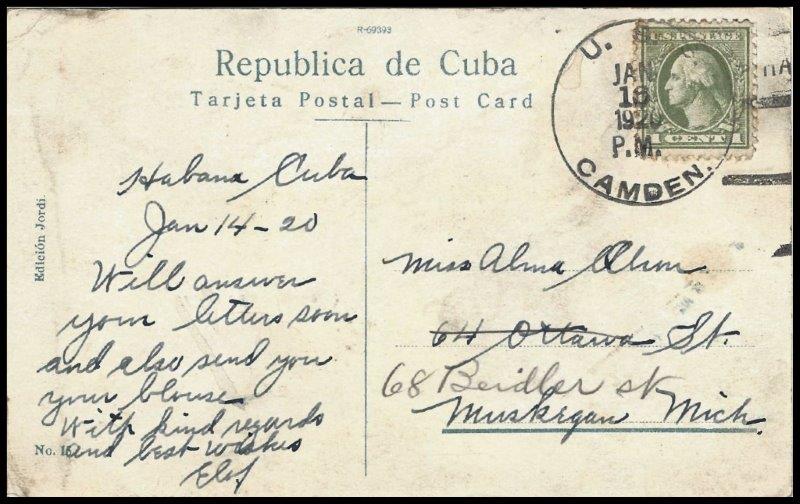 R-69393
Republica de Cuba
Tarjeta Postal — Post Card
U. S. S.
JAN
1920
P.M.
CAMDEN.
U.S. POSTAGE
1 CENT 1
Edición Jordi.
Habana Cuba
Jan 14-20
Will answer
your letters soon
and also send you
your blouse
With kind regards
and best wishes
Elof
No.
Miss Alma Olson
64 Ottawa St.
68 Beidler st
Muskegan Mich.